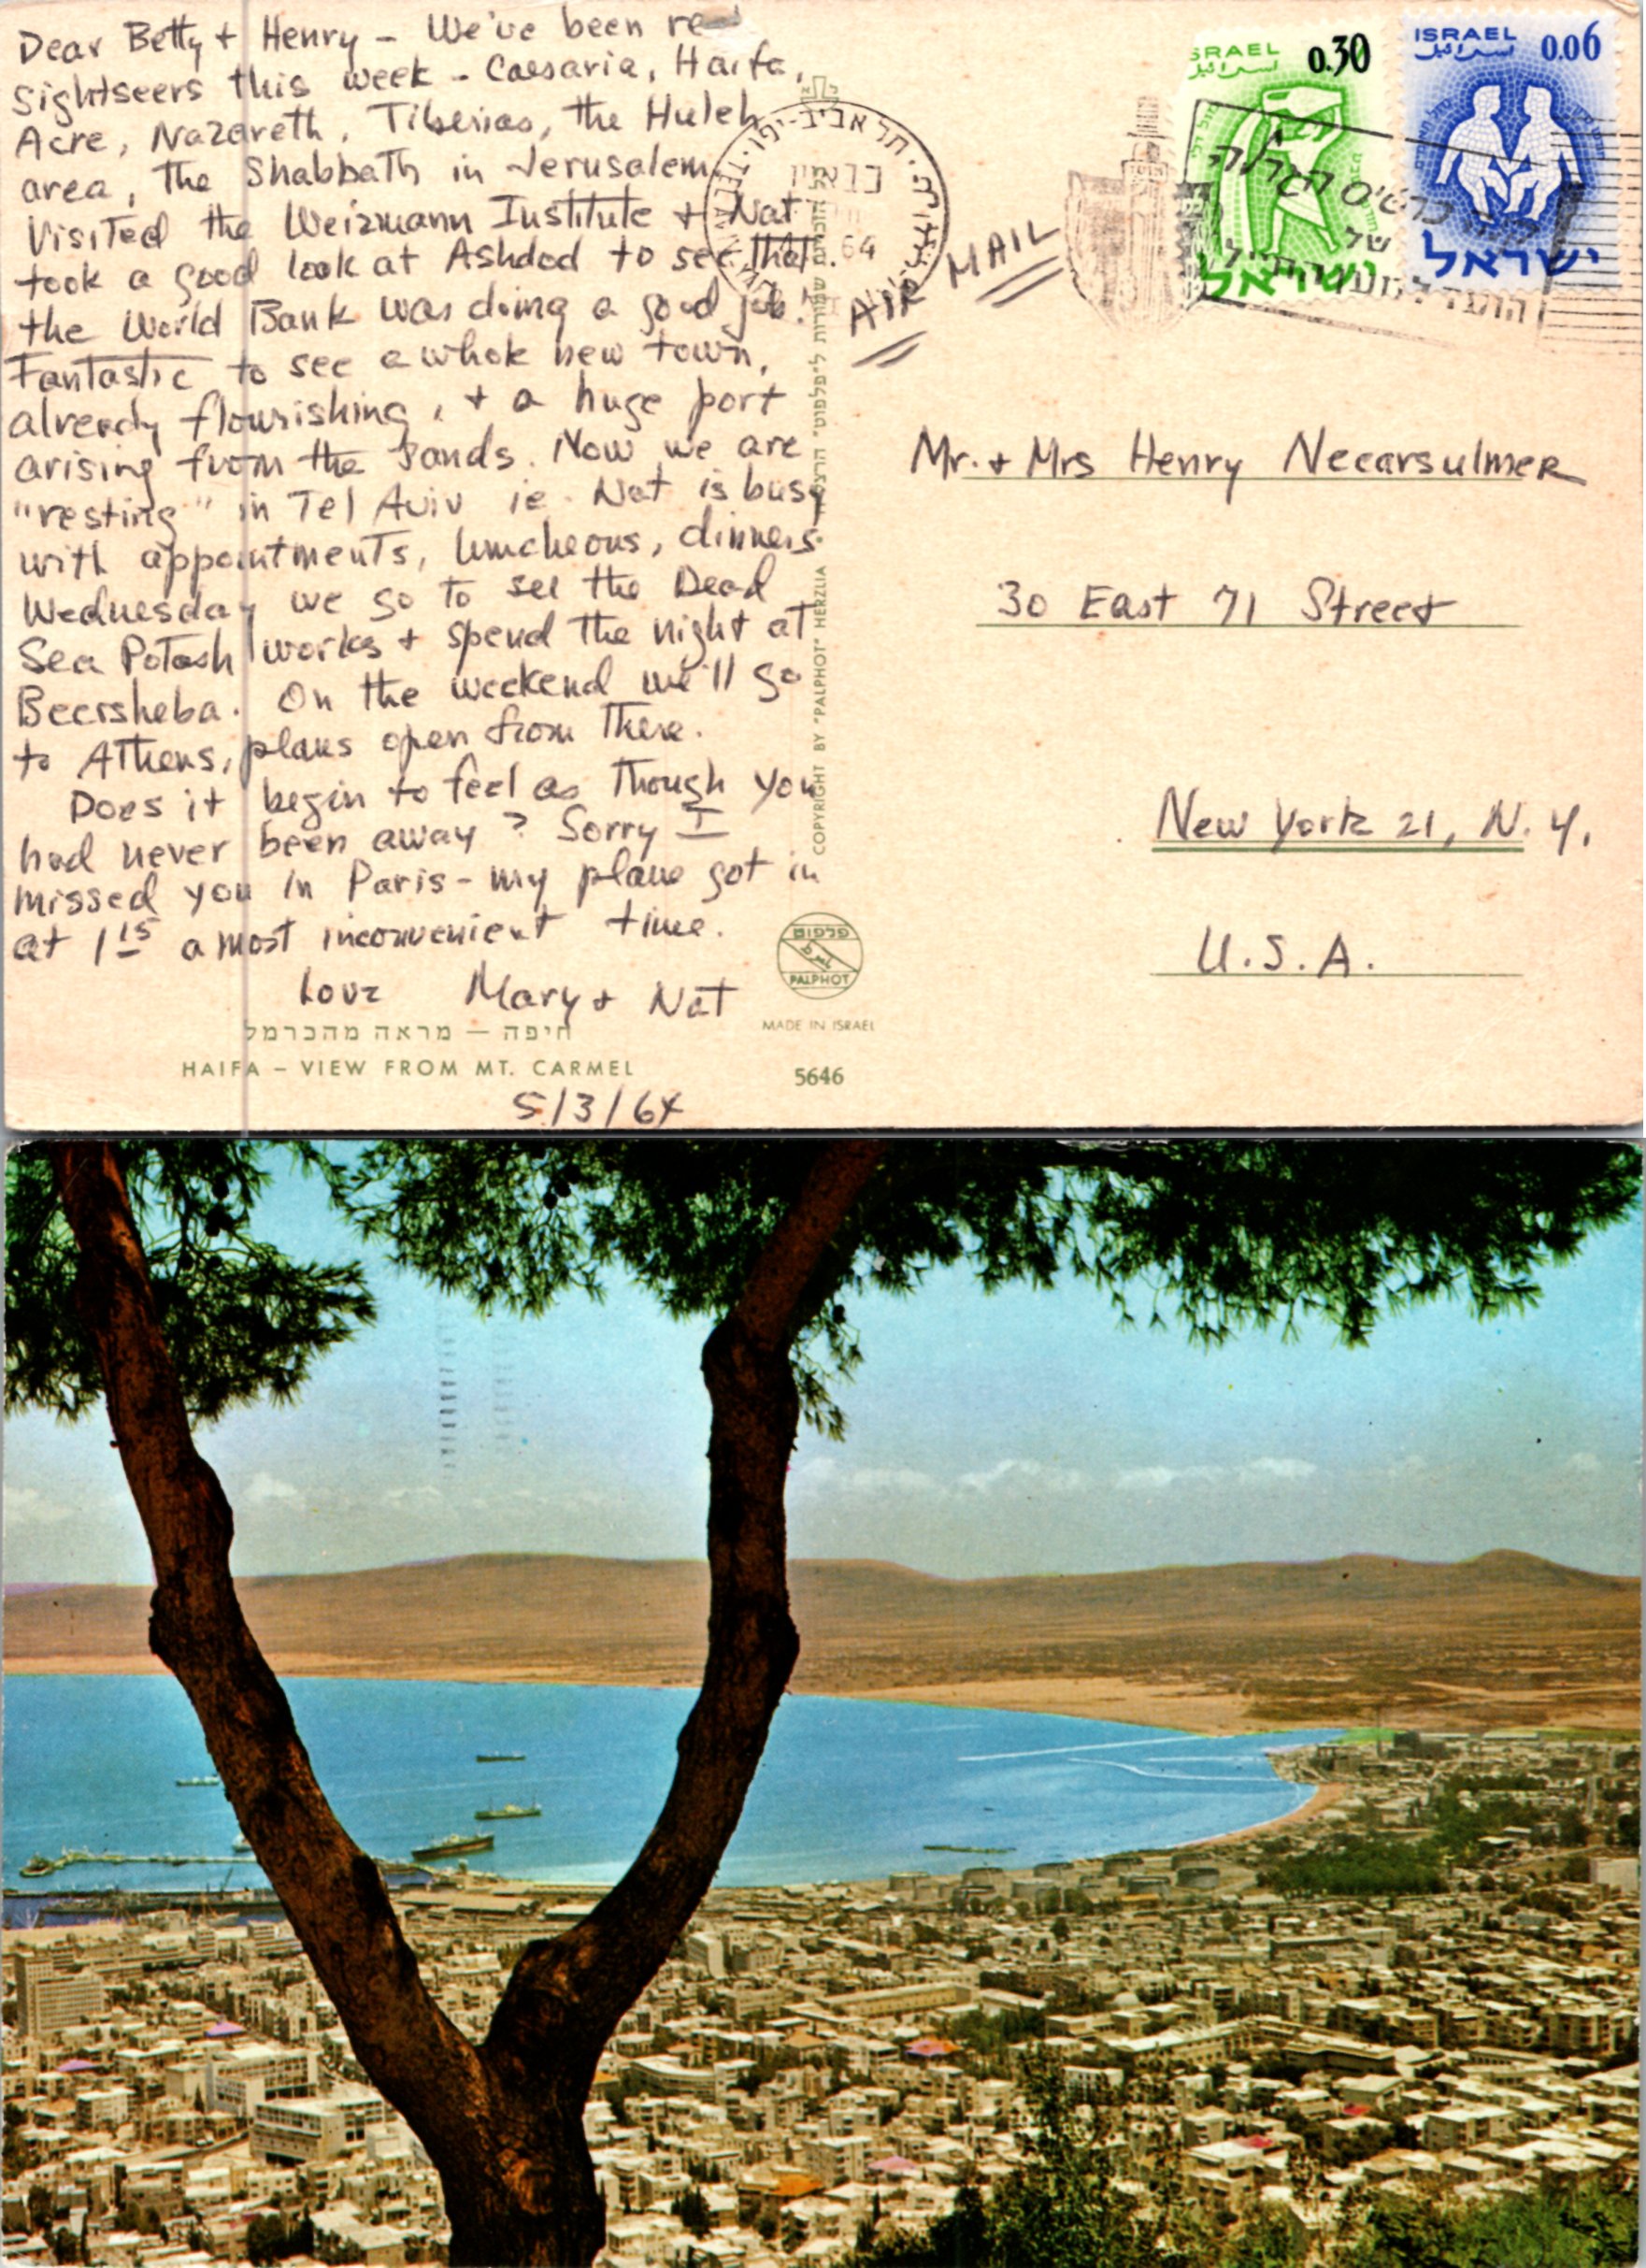 Dear Betty + Henry - We've been
sightseers this week - Caesaria, Haifa,
Acre, Nazareth, Tiberias, the Huleh
area, the Shabbath in Jerusalem
Visited the Weizmann Institute + Nat
took a good look at Ashdod to see that
the World Bank was doing a good job!
Fantastic to see a whole new town,
already flourishing, + a huge port
arising from the sands. Now we are
"resting" in Tel Aviv ie. Nat is busy
with appointments, luncheons, dinners.
Wednesday we go to see the Dead
Sea Potash works + spend the night at
Beersheba. On the weekend we'll go
to Athens, plans open from there.
Does it begin to feel as though you
had never been away? Sorry I
missed you in Paris - my plane got in
at 1 15 a most inconvenient time.
Love Mary + Nat
חיפה — מראה מהכרמל
HAIFA – VIEW FROM MT. CARMEL
5/3/64
תל אביב-יפו
64
COPYRIGHT BY "PALPHOT" HERZLIA
פלפוט
PALPHOT
MADE IN ISRAEL
5646
AIR MAIL
ISRAEL 0.30
اسرائيل
ישראל
ISRAEL 0.06
اسرائيل
ישראל
של
Mr. + Mrs Henry Necarsulmer
30 East 71 Street
New York 21, N.Y.
U.S.A.